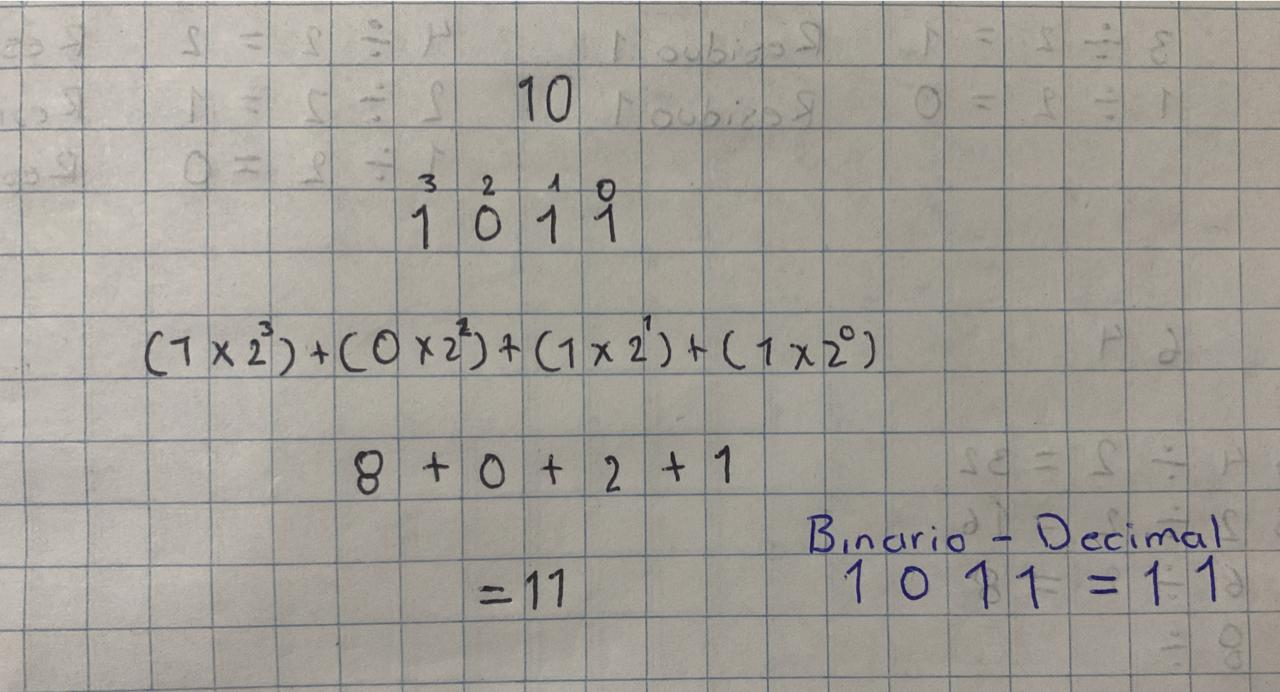 10
3 2 1 0
1 0 1 1
(1 x 2³) + (0 x 2²) + (1 x 2¹) + (1 x 2⁰)
8 + 0 + 2 + 1
= 11
Binario - Decimal
1 0 1 1 = 1 1